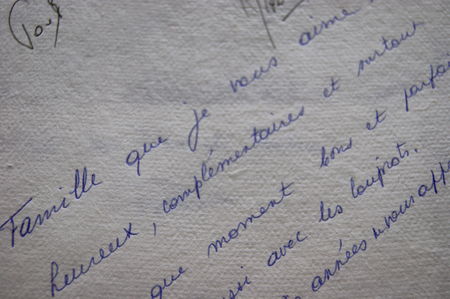 Famille que je vous aime
heureux, complémentaires et surtout
que moment bons et parfai
avec les loupiots.
années